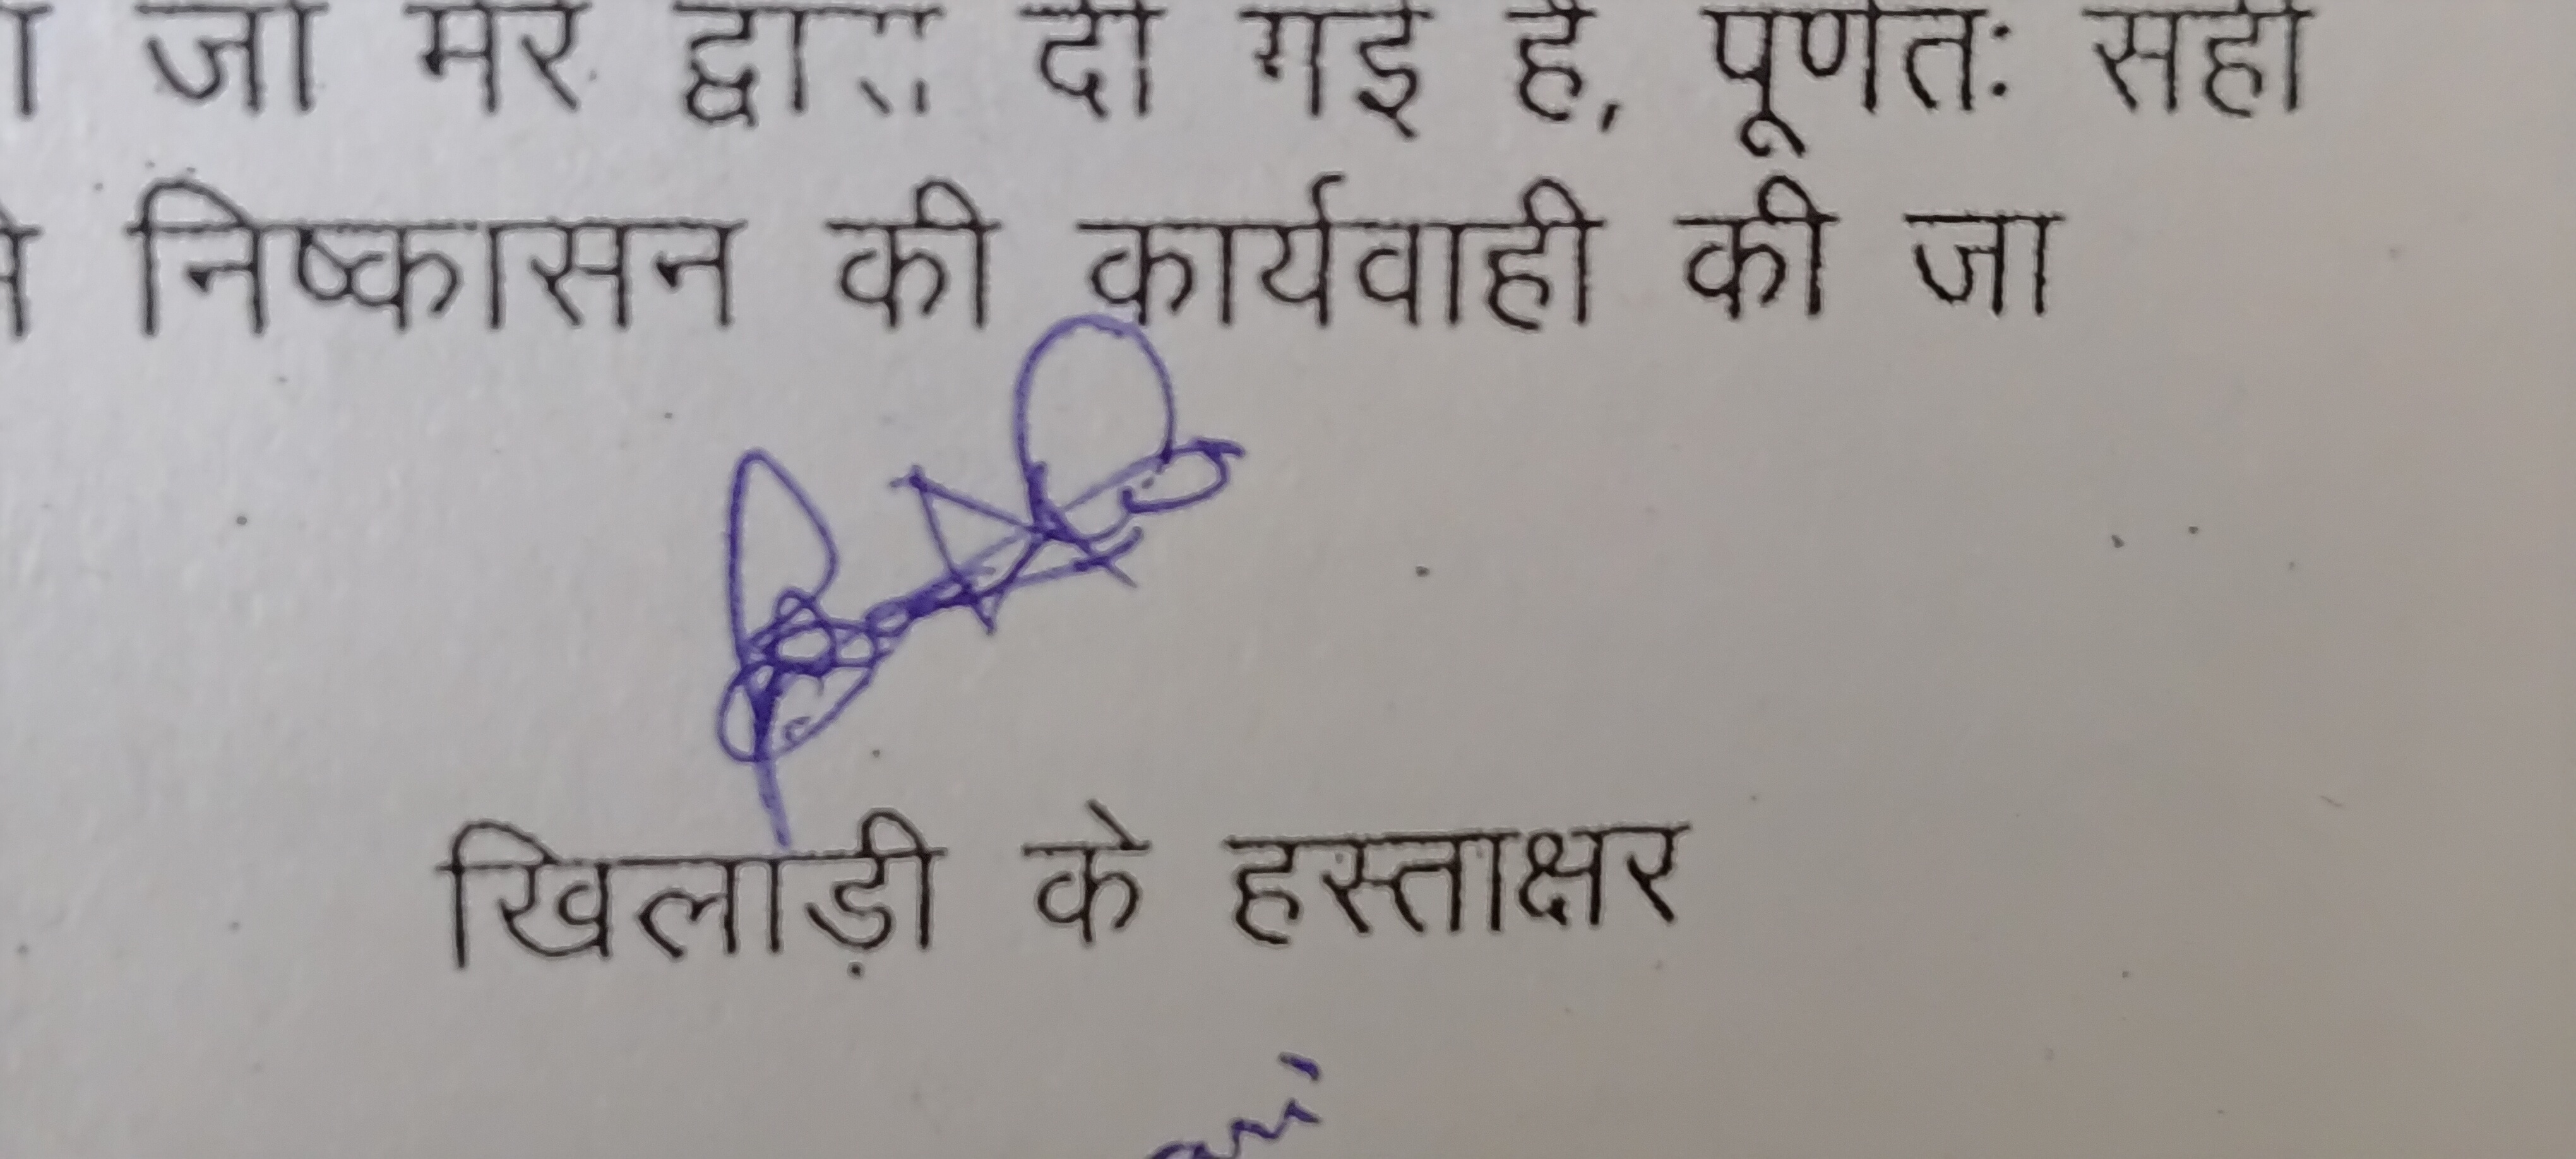 जो मेरे द्वारा दी गई है, पूर्णतः सही
निष्कासन की कार्यवाही की जा
खिलाड़ी के हस्ताक्षर
ani